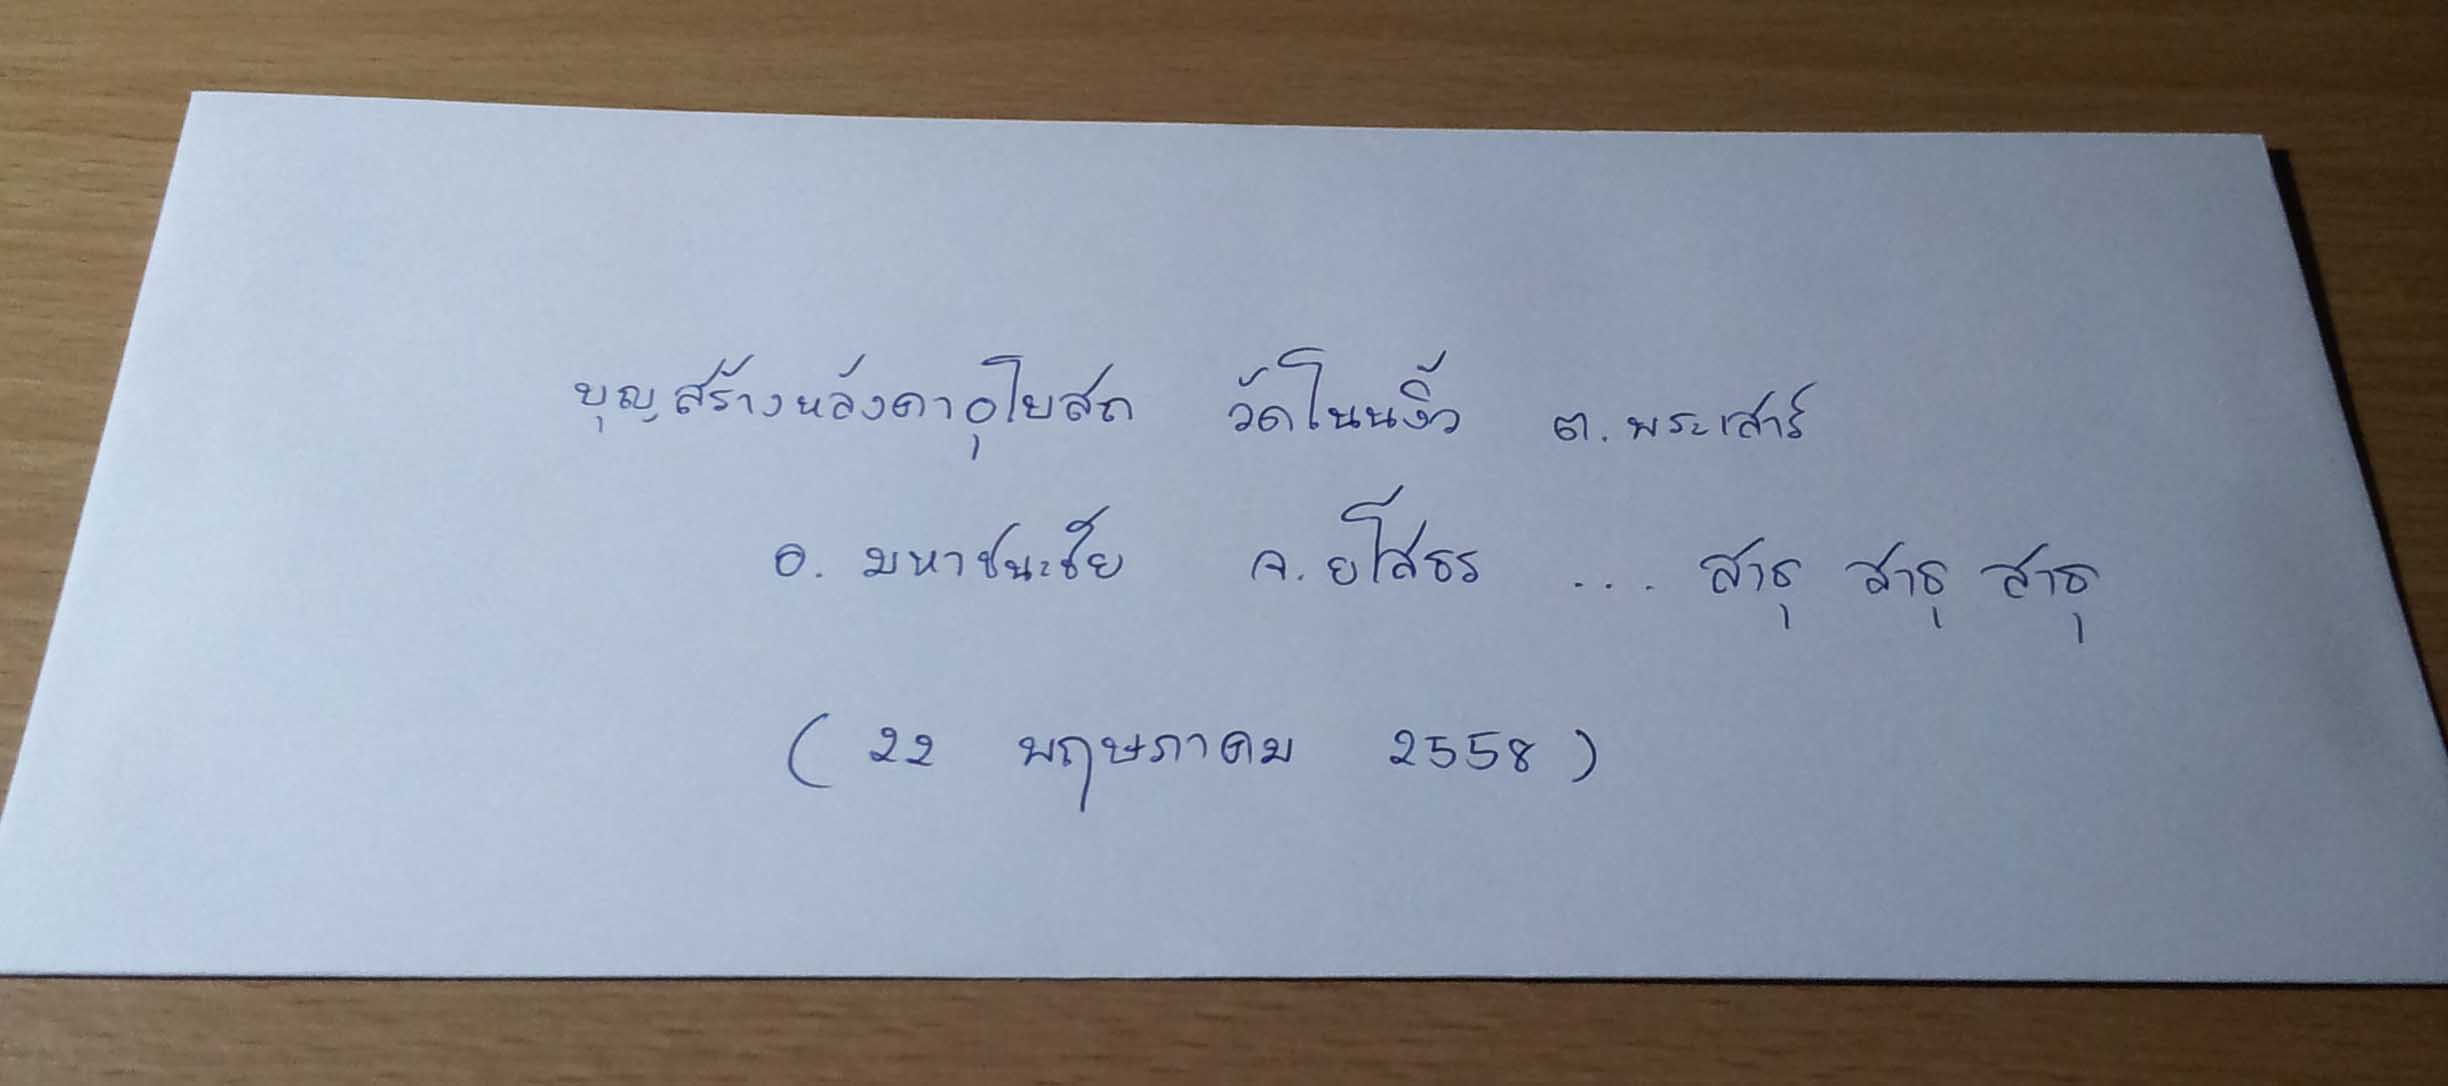 บุญสร้างหลังคาอุโบสถ วัดโนนงิ้ว ต.พระเสาร์
อ. มหาชนะชัย จ.ยโสธร ... สาธุ สาธุ สาธุ
( 22 พฤษภาคม 2558 )